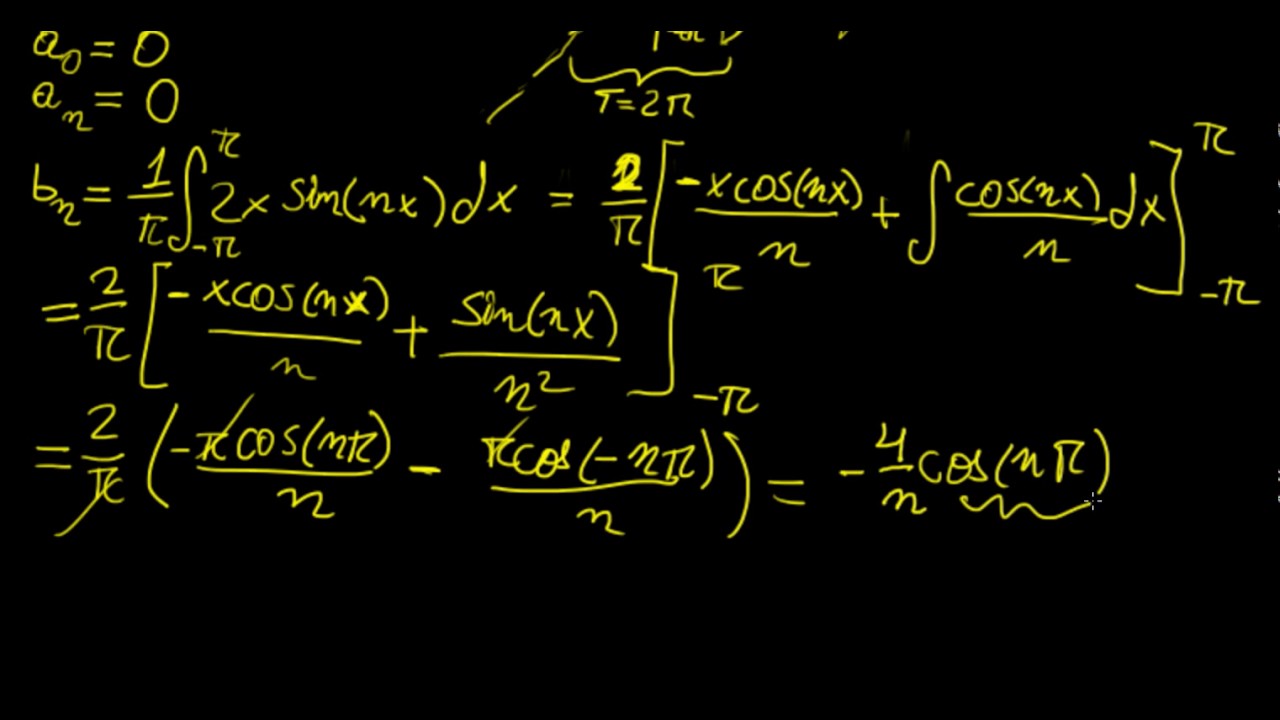 a₀ = 0
aₙ = 0
T = 2π
bₙ = 1/π ∫_{-π}^{π} 2x sin(nx) dx = 2/π [ -xcos(nx)/n + ∫ cos(nx)/n dx ]_{-π}^{π}
= 2/π [ -xcos(nx)/n + sin(nx)/n² ]_{-π}^{π}
= 2/π ( -πcos(nπ)/n - πcos(-nπ)/n ) = -4/n cos(nπ)